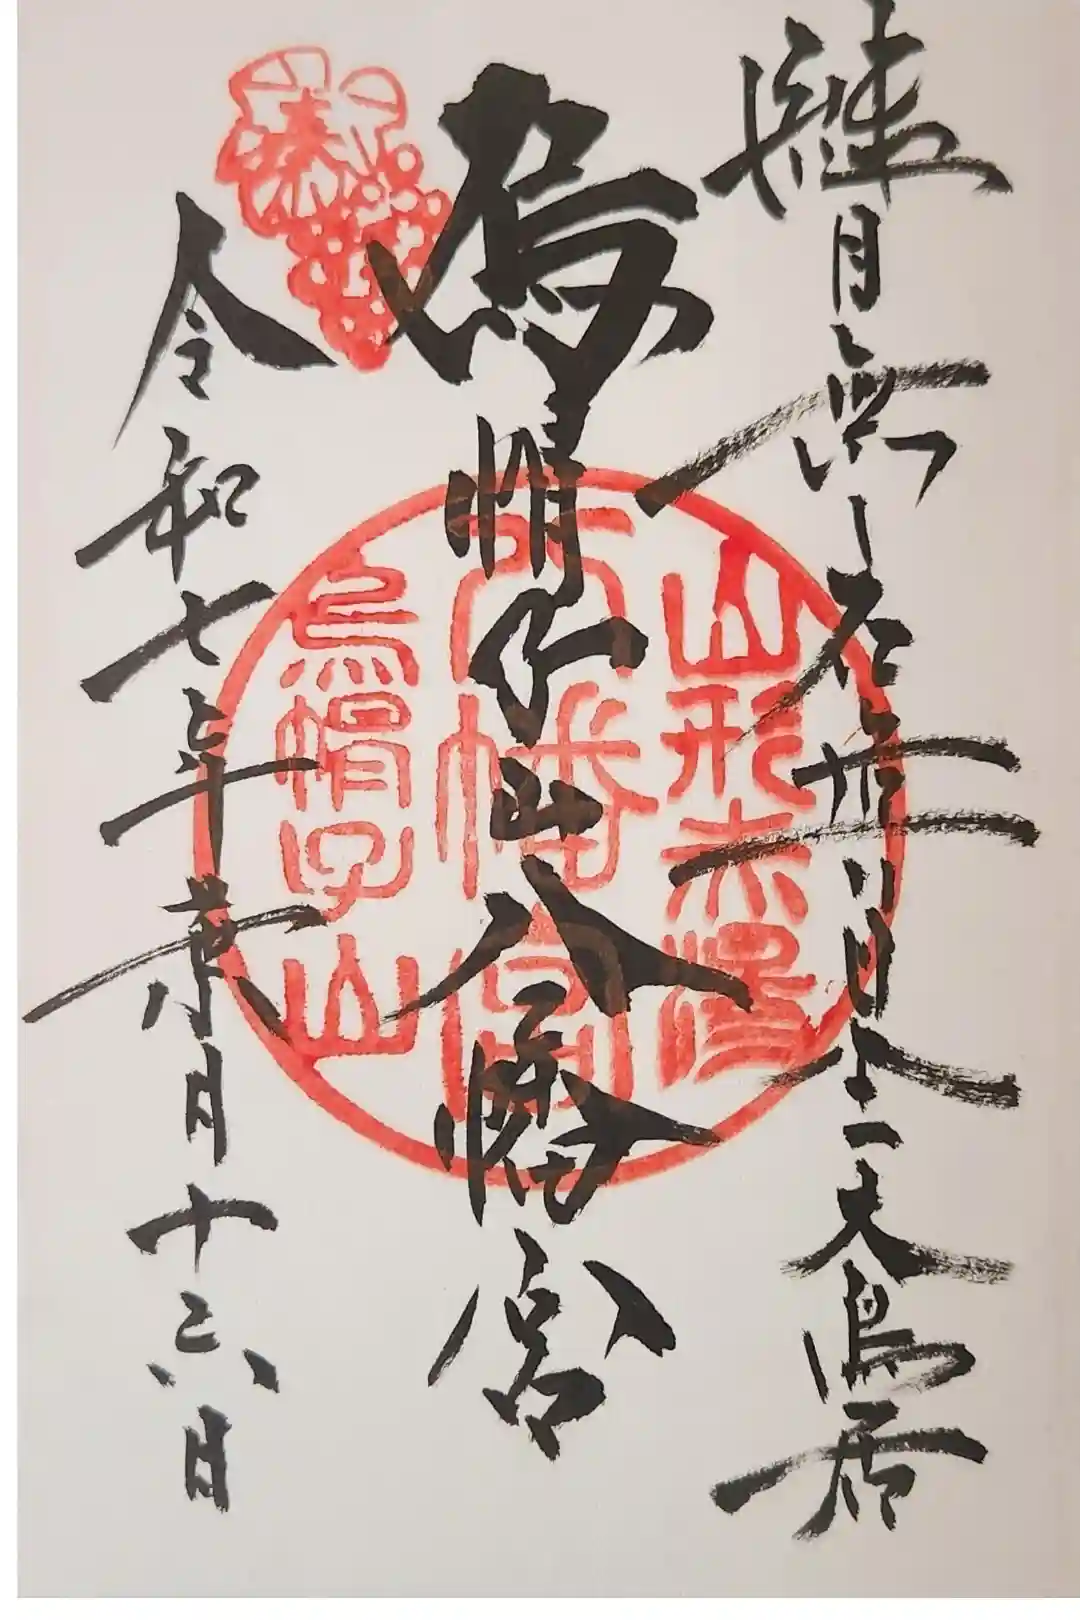 継目無し石造り日本一大鳥居
烏帽子山八幡宮
山形赤湯
八幡宮
烏帽子山
令和七年
月十六日